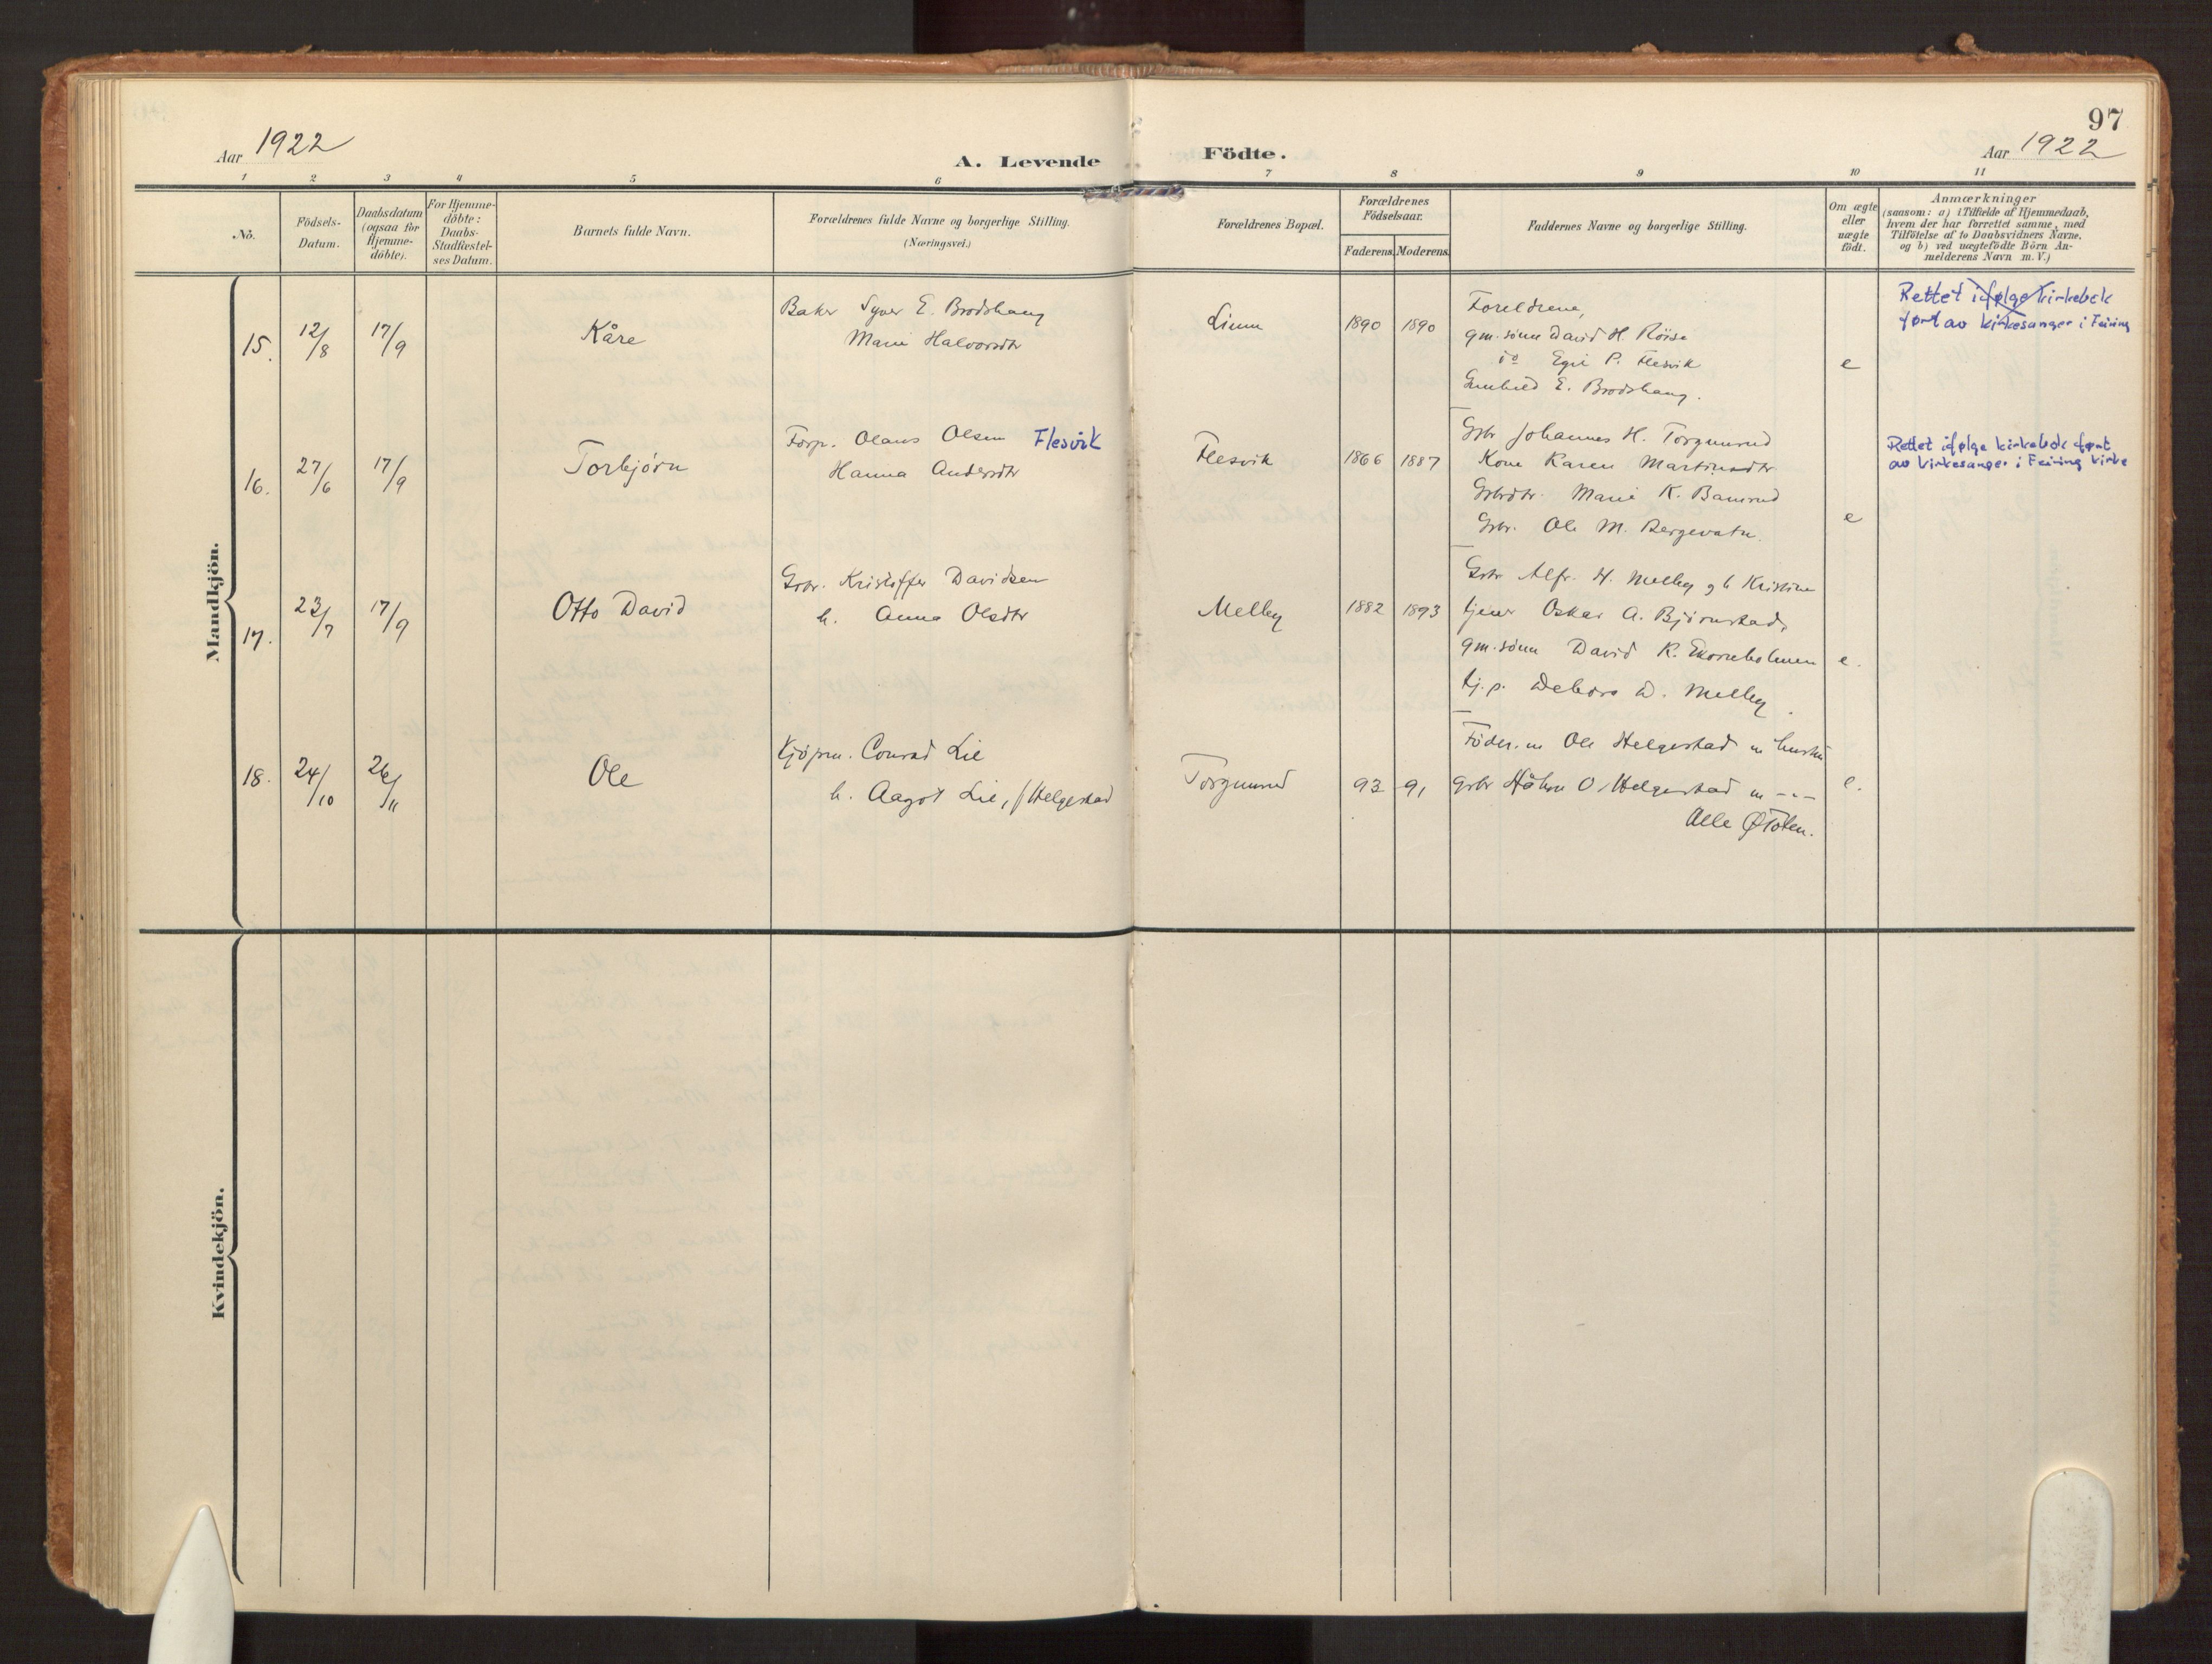 97
Aar 1922
A. Levende Födte.
Aar 1922
1 2 3 4 5 6 7 8 9 10 11
No.
Födsels-
Datum.
Daabsdatum
(ogsaa for
Hjemme-
döbte).
For Hjemme-
döbte:
Daabs-
Stadfæstel-
ses Datum.
Barnets fulde Navn.
Forældrenes fulde Navne og borgerlige Stilling.
(Næringsvei.)
Forældrenes Bopæl.
Forældrenes
Födselsaar.
Faderens. Moderens.
Faddernes Navne og borgerlige Stilling.
Om ægte
eller
uægte
födt.
Anmærkninger
(saasom: a) i Tilfælde af Hjemmedaab,
hvem der har forrettet samme, med
Tilföielse af to Daabsvidners Navne,
og b) ved uægtefödte Börn An-
melderens Navn m. V.)
Mandkjön.
15. 12/8 17/9 Kåre
Baker Syver E. Brodshaug
Marie Halvorsdtr
Lium 1890 1890
Foreldrene,
gm.sønn David H. Rörse
do Egil P. Flesvik
Gunhild E. Brodshaug.
e
Rettet ifølge kirkebok
ført av kirkesanger i Feiring
16. 27/6 17/9 Torbjörn
Forp. Olaus Olsen Flesvik
Hanna Andersdtr
Flesvik 1866 1887
Gbr Johannes H. Torgunrud
Kone Karen Martinsdtr
Gbrdtr. Marie K.
Gbr. Ole M. Bergevatn.
e
Rettet ifølge kirkebok ført
av kirkesanger i Feiring kirke
17. 23/7 17/9 Otto David
Gbr. Kristoffer Davidsen
h. Anna Olsdtr
Melby 1882 1893
Gbr Alfr. H. Melby og h Kristine
tjener Oskar A. Björnstad,
gm.sönn David K. Ekorneholmen
tj.p. Debora D. Melby.
e.
18. 24/10 26/11 Ole
Kjöpm. Conrad Lie
h. Aagot Lie, f/Helgestad
Torgunrud 93 91
Föder.m Ole Helgestad m hustru
gbr Håkon O. Helgestad m -"-
Alle ØToten.
e.
Kvindekjön.